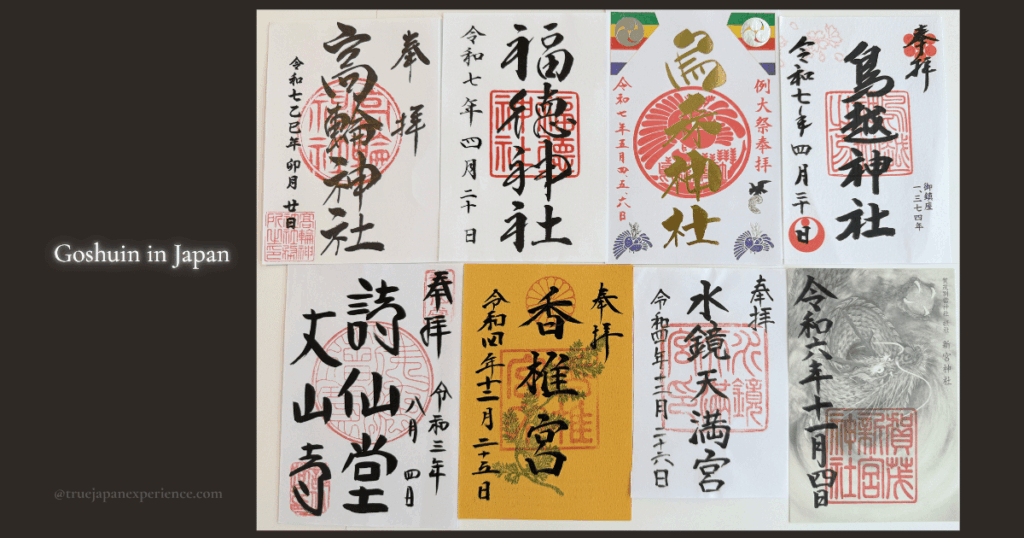 Goshuin in Japan
@truejapanexperience.com
奉拝
高輪神社
令和七乙巳年 卯月 廿日
福徳神社
令和七年四月二十日
例大祭奉拝
烏森神社
令和七年五月四、五、六日
奉拝
鳥越神社
令和七年四月二十日
御鎮座
一、三七四年
奉拝
令和三年
八月四日
詩仙堂
丈山寺
奉拝
香椎宮
令和四年十二月二十五日
奉拝
水鏡天満宮
令和四年十二月二十六日
新宮神社
令和六年十一月四日
賀茂
新宮
神社